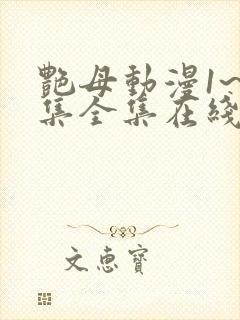 艷母動漫1~
集全集在綫
文惠寶